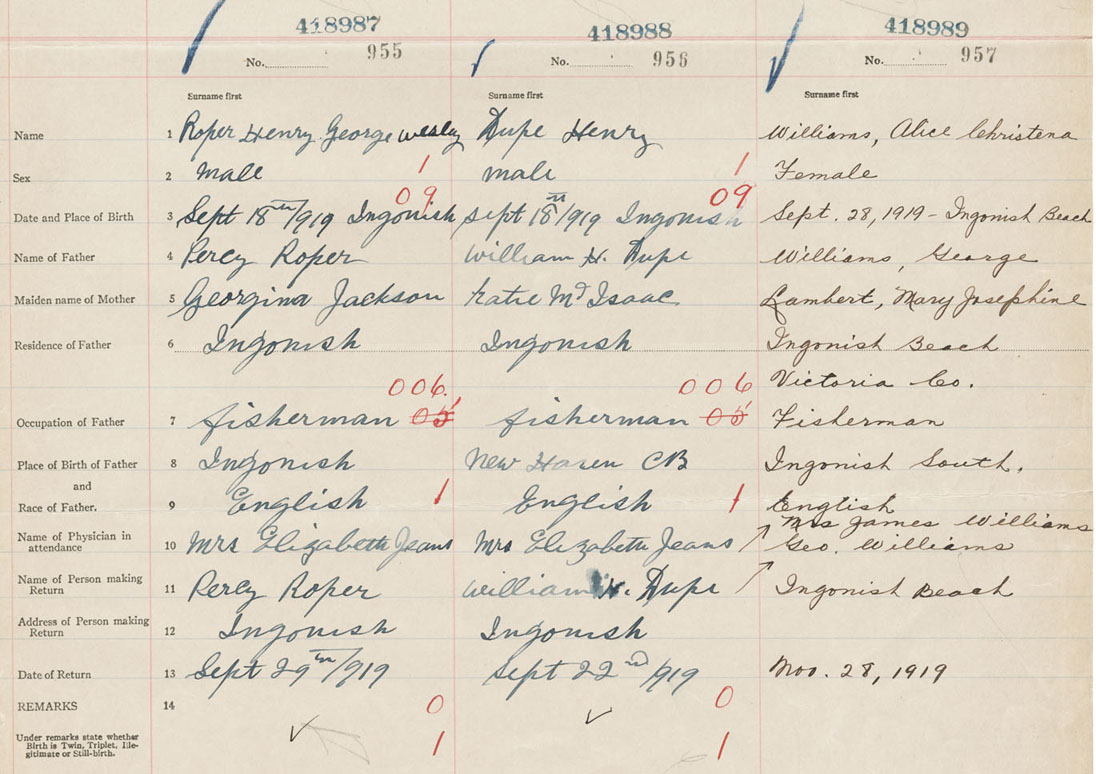 418987 418988 418989
No. 955 No. 956 No. 957
Surname first Surname first Surname first
Name 1 Roper Henry George Wesley Dupe Henry Williams, Alice Christena
Sex 2 Male 1 male 1 Female
09 09
Date and Place of Birth 3 Sept 18th/919 Ingonish Sept 18th/919 Ingonish Sept. 28, 1919 - Ingonish Beach
Name of Father 4 Percy Roper William H. Dupe Williams, George
Maiden name of Mother 5 Georgina Jackson Katie McIsaac Lambert, Mary Josephine
Residence of Father 6 Ingonish Ingonish Ingonish Beach
006 006 Victoria Co.
Occupation of Father 7 fisherman 05 fisherman 05 Fisherman
Place of Birth of Father 8 Ingonish New Haven CB Ingonish South.
and
Race of Father. 9 English 1 English 1 English
Name of Physician in Mrs James Williams
attendance 10 Mrs Elizabeth Jeans Mrs Elizabeth Jeans Geo. Williams
Name of Person making
Return 11 Percy Roper William H. Dupe Ingonish Beach
Address of Person making
Return 12 Ingonish Ingonish
Date of Return 13 Sept 29th/919 Sept 22nd/919 Nov. 28, 1919
REMARKS 14 0 0
Under remarks state whether
Birth is Twin, Triplet, Ille-
gitimate or Still-birth. 1 1